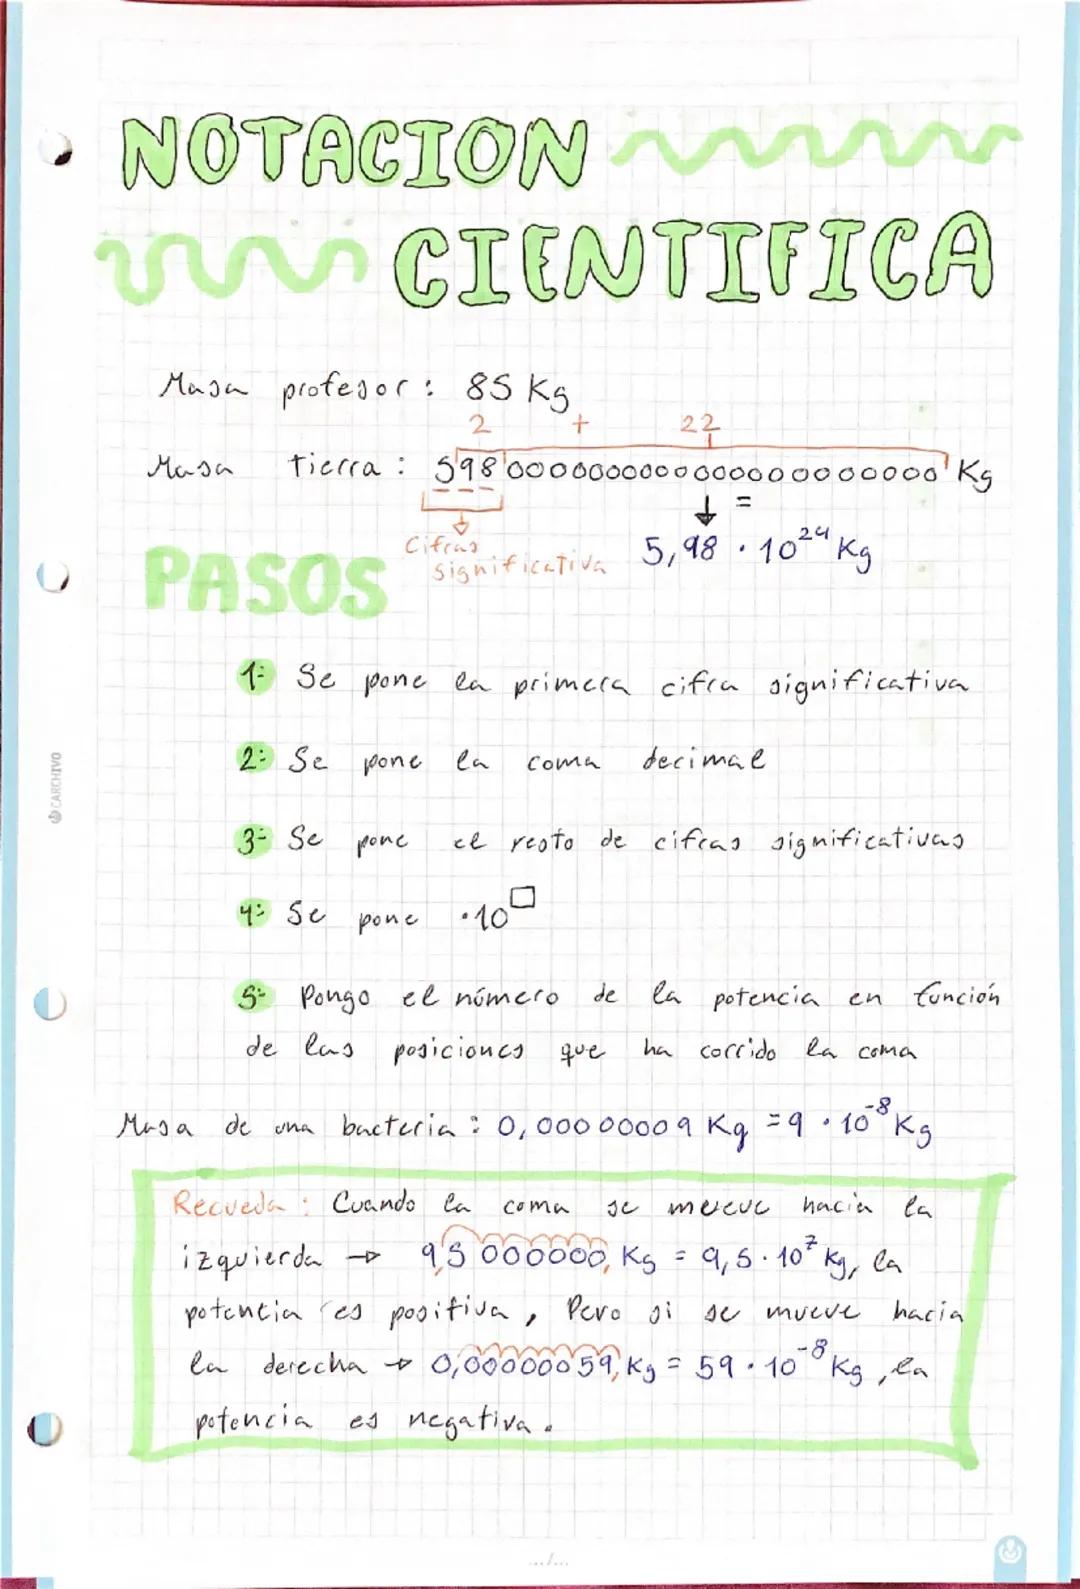 NOTACION
CIENTIFICA
Masa profesor: 85 Kg
2 + 22
Masa tierra: 5980000000000000000000000 Kg
↓ =
Cifras
significativa
5,98 · 10²⁴ Kg
PASOS
1- Se pone la primera cifra significativa
2- Se pone la coma decimal
3- Se pone el resto de cifras significativas
4- Se pone ·10□
5- Pongo el número de la potencia en función
de las posiciones que ha corrido la coma
Masa de una bacteria: 0,00000009 Kg = 9 · 10⁻⁸ Kg
Recueda: Cuando la coma se mueve hacia la
izquierda → 9,5 000000, Kg = 9,5 · 10⁷ Kg, la
potencia es positiva, Pero si se mueve hacia
la derecha → 0,00000059, Kg = 59 · 10⁻⁸ Kg, la
potencia es negativa.
CARCHIVO
.../...